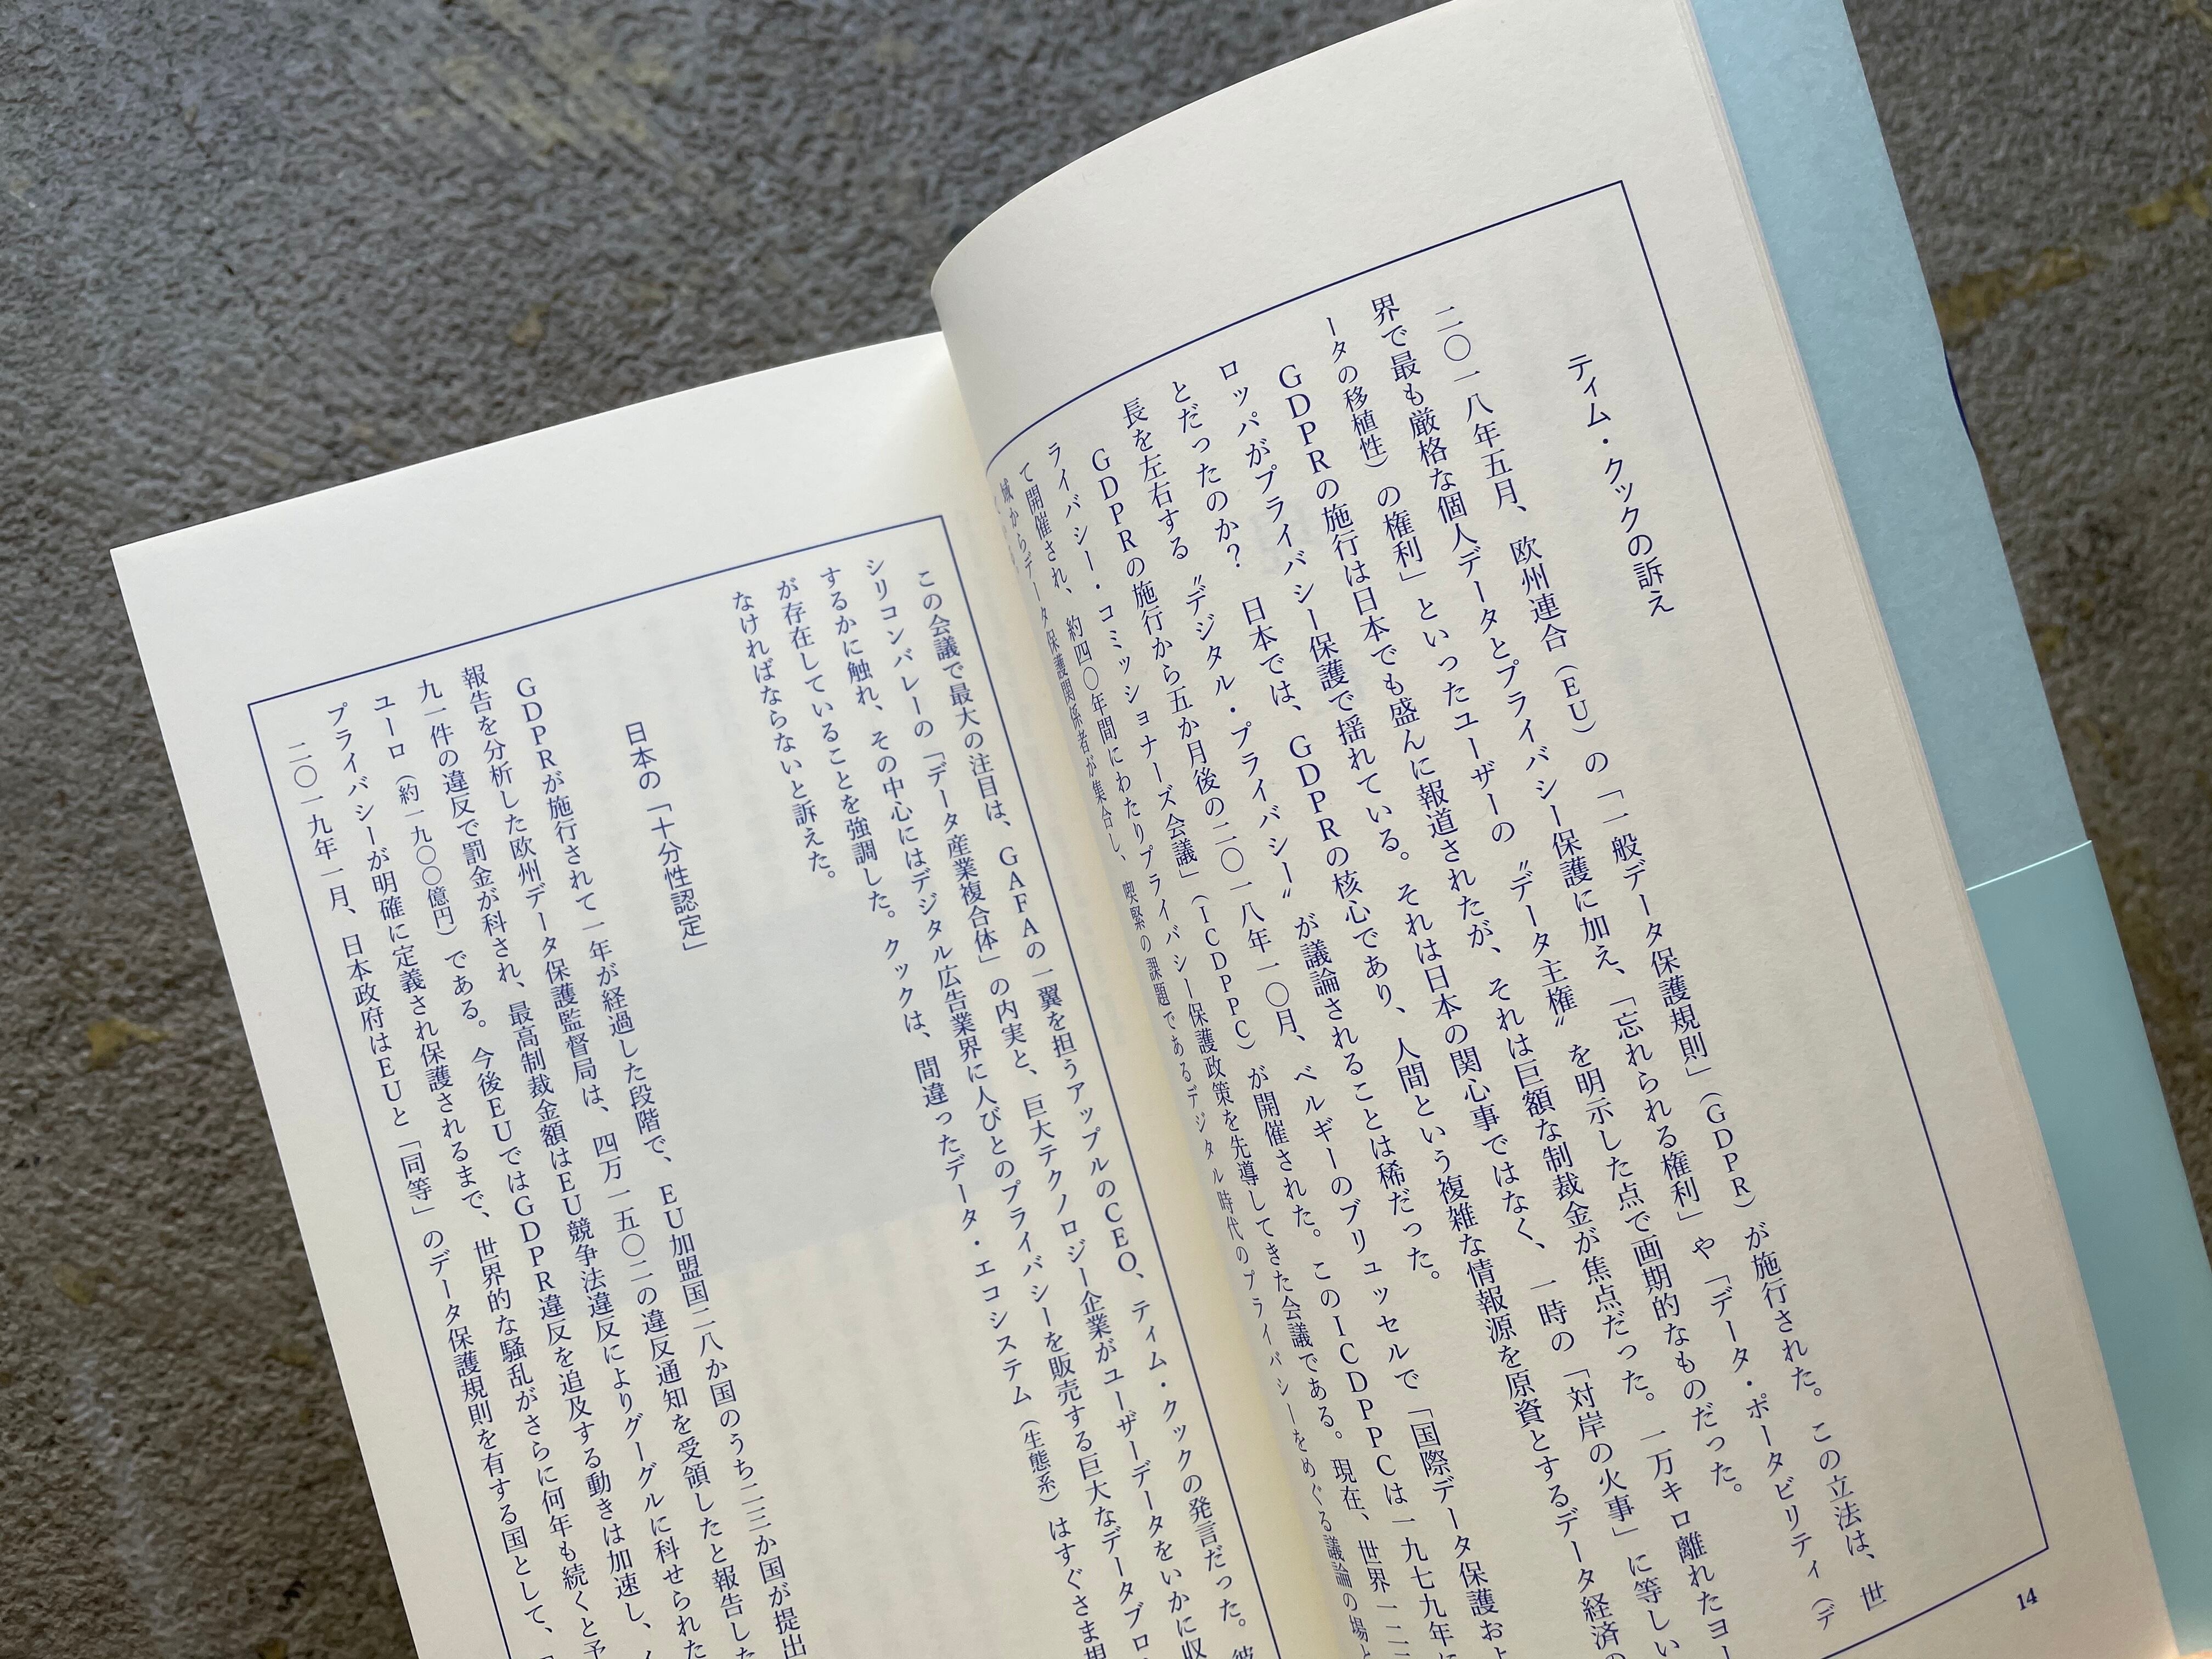 ティム・クックの訴え
二〇一八年五月、欧州連合（EU）の「一般データ保護規則」（GDPR）が施行された。この立法は、世
界で最も厳格な個人データとプライバシー保護に加え、「忘れられる権利」や「データ・ポータビリティ（デ
ータの移植性）の権利」といったユーザーの〝データ主権〟を明示した点で画期的なものだった。
GDPRの施行は日本でも盛んに報道されたが、それは巨額な制裁金が焦点だった。一万キロ離れたヨー
ロッパがプライバシー保護で揺れている。それは日本の関心事ではなく、一時の「対岸の火事」に等しい
とだったのか？　日本では、GDPRの核心であり、人間という複雑な情報源を原資とするデータ経済の
長を左右する〝デジタル・プライバシー〟が議論されることは稀だった。
GDPRの施行から五か月後の二〇一八年一〇月、ベルギーのブリュッセルで「国際データ保護およ
ライバシー・コミッショナーズ会議」（ICDPPC）が開催された。このICDPPCは一九七九年に
て開催され、約四〇年間にわたりプライバシー保護政策を先導してきた会議である。現在、世界一二
域からデータ保護関係者が集合し、喫緊の課題であるデジタル時代のプライバシーをめぐる議論の場と
14
この会議で最大の注目は、GAFAの一翼を担うアップルのCEO、ティム・クックの発言だった。彼
シリコンバレーの「データ産業複合体」の内実と、巨大テクノロジー企業がユーザーデータをいかに収
するかに触れ、その中心にはデジタル広告業界に人びとのプライバシーを販売する巨大なデータブロ
が存在していることを強調した。クックは、間違ったデータ・エコシステム（生態系）はすぐさま
なければならないと訴えた。
日本の「十分性認定」
GDPRが施行されて一年が経過した段階で、EU加盟国二八か国のうち二三か国が提出
報告を分析した欧州データ保護監督局は、四万一五〇二の違反通知を受領したと報告した
九一件の違反で罰金が科され、最高制裁金額はEU競争法違反によりグーグルに科せられた
ユーロ（約一九〇〇億円）である。今後EUではGDPR違反を追及する動きは加速し、
プライバシーが明確に定義され保護されるまで、世界的な騒乱がさらに何年も続くと予
二〇一九年一月、日本政府はEUと「同等」のデータ保護規則を有する国として、「